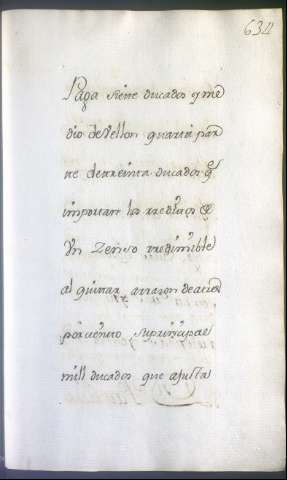 634
Paga siette ducados y me
dio de Vellon quarta par
tte de treinta ducados q̃
importan los rreditos de
Un Zenso rredimible
al quittar arrazon de a tres
por ciento su prinçipal
mill ducados que ajusta